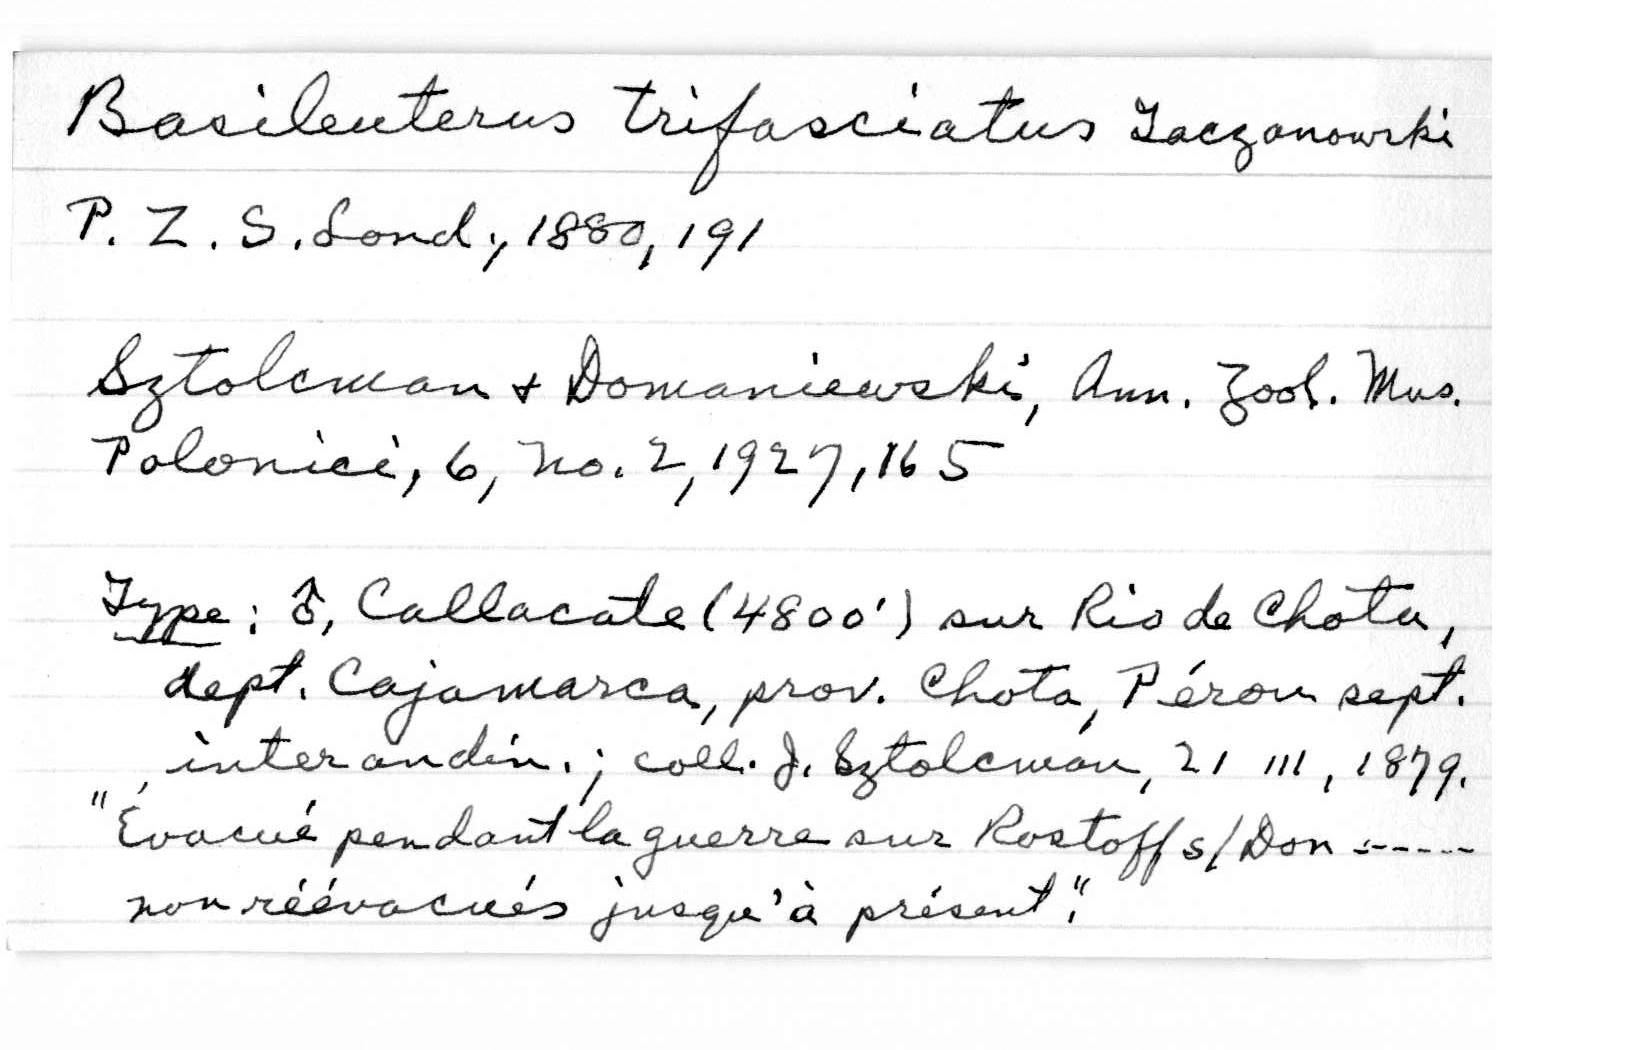 Basileuterus trifasciatus Taczanowski
P. Z. S. Lond., 1880, 191
Sztolcman + Domaniewski, Ann. Zool. Mus.
Polonici, 6, no. 2, 1927, 165
Type: ♂, Callacate (4800') sur Rio de Chota,
dept. Cajamarca, prov. Chota, Pérou sept.
interandin.; coll. J. Sztolcman, 21 III, 1879.
"Évacué pendant la guerre sur Rostoff s/Don -----
non réévacués jusqu'à présent."